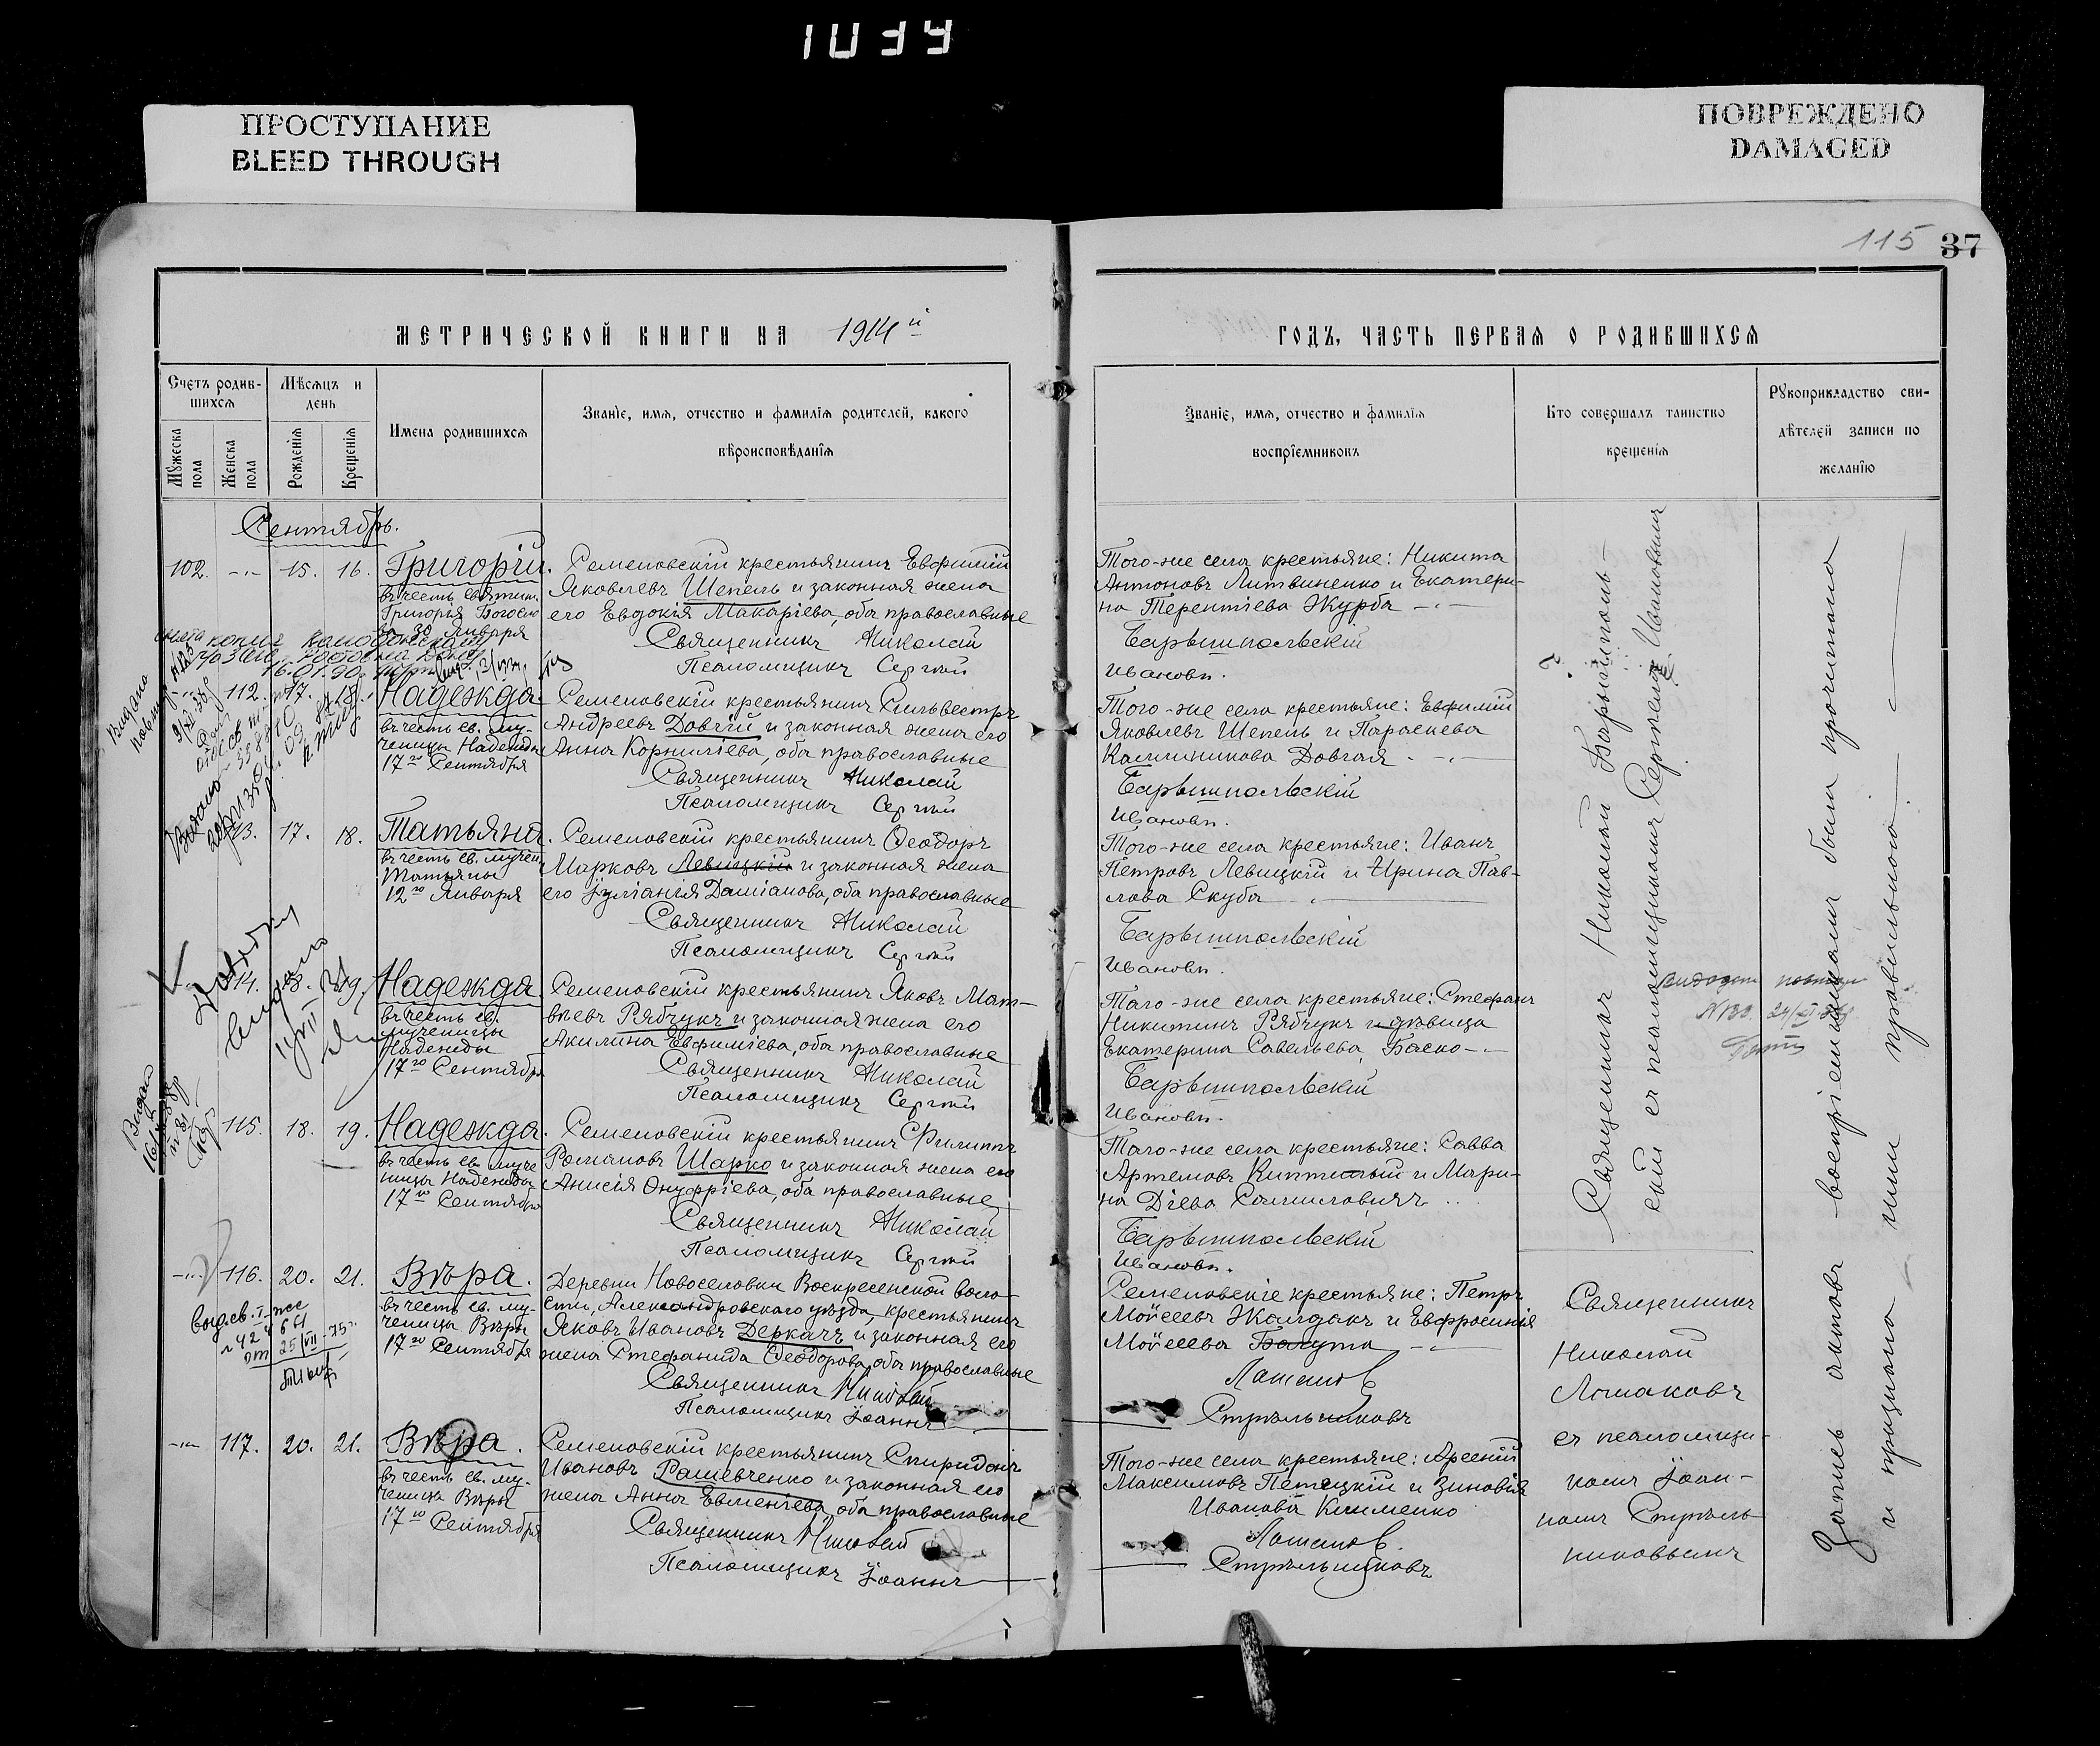 ПРОСТУПАНИЕ
BLEED THROUGH
ПОВРЕЖДЕНО
DAMAGED
115 37
МЕТРИЧЕСКОЙ КНИГИ НА 1914й
ГОДЪ, ЧАСТЬ ПЕРВАЯ О РОДИВШИХСЯ
Счетъ родив-
шихся
Мѣсяцъ и
день
Мужеска пола
Женска пола
Рожденія
Крещенія
Имена родившихся
Званіе, имя, отчество и фамилія родителей, какого
вѣроисповѣданія
Званіе, имя, отчество и фамилія
воспріемниковъ
Кто совершалъ таинство
крещенія
Рукоприкладство сви-
дѣтелей записи по
желанію
Сентябрь.
102. 15. 16. Григорій.
въ честь святит.
Григорія Богосло
30 Января
Семеновскій крестьянинъ Евфимій
Яковлевъ Шепель и законная жена
его Евдокія Макаріева, оба православные
Священникъ Николай
Псаломщикъ Сергій
Того-же села крестьяне: Никита
Антоновъ Литвиненко и Екатери-
на Терентіева Журба
Барышпольскій
Ивановъ.
112. 17. 18. Надежда.
въ честь св. му-
ченицы Надежды
17го Сентября
Семеновскій крестьянинъ Сильвестръ
Андреевъ Довгій и законная жена его
Анна Корниліева, оба православные
Священникъ Николай
Псаломщикъ Сергій
Того-же села крестьяне: Евфимій
Яковлевъ Шепель и Параскева
Каллиникова Довгая
Барышпольскій
Ивановъ.
113. 17. 18. Татьяна.
въ честь св. мучен.
Татьяны
12го Января
Семеновскій крестьянинъ Ѳеодоръ
Марковъ Левицкій и законная жена
его Іуліанія Даміанова, оба православные
Священникъ Николай
Псаломщикъ Сергій
Того-же села крестьяне: Иванъ
Петровъ Левицкій и Ирина Пав-
лова Скуба
Барышпольскій
Ивановъ.
114. 18. 19. Надежда.
въ честь св.
мученицы
Надежды
17го Сентября
Семеновскій крестьянинъ Яковъ Мат-
вѣевъ Рябчукъ и законная жена его
Акилина Евфиміева, оба православные
Священникъ Николай
Псаломщикъ Сергій
Того-же села крестьяне: Стефанъ
Никитинъ Рябчукъ и дѣвица
Екатерина Савельева Баско
Барышпольскій
Ивановъ.
115. 18. 19. Надежда.
въ честь св. муче
ницы Надежды
17го Сентября
Семеновскій крестьянинъ Филиппъ
Романовъ Шарко и законная жена его
Анисія Онуфріева, оба православные
Священникъ Николай
Псаломщикъ Сергій
Того-же села крестьяне: Савва
Артемовъ и Мари-
на Діева
Барышпольскій
Ивановъ.
116. 20. 21. Вѣра.
въ честь св. му-
ченицы Вѣры
17го Сентября
Деревни Новоселовки Воскресенской воло-
сти, Александровскаго уѣзда, крестьянинъ
Яковъ Ивановъ Деркачъ и законная его
жена Стефанида Ѳеодорова, оба православные
Священникъ Николай
Псаломщикъ Іоаннъ
Семеновскіе крестьяне: Петръ
Моисеевъ Жалдакъ и Евфросинія
Моисеева
Лошаковъ
Стрѣльниковъ
117. 20. 21. Вѣра.
въ честь св. му-
ченицы Вѣры
17го Сентября
Семеновскій крестьянинъ Спиридонъ
Ивановъ Рашевченко и законная его
жена Анна Евменіева, оба православные
Священникъ Николай
Псаломщикъ Іоаннъ
Того-же села крестьяне: Арсеній
Максимовъ Петецкій и Зиновія
Иванова Клименко
Лошаковъ.
Стрѣльниковъ
Священникъ Николай Барышполь-
скій съ псаломщикомъ Сергіемъ Ивановымъ
Священникъ
Николай
Лошаковъ
съ псаломщи-
комъ Іоан-
номъ Стрѣль-
никовымъ
Запись актовъ воспріемникамъ была прочитана
и признана ими правильною.